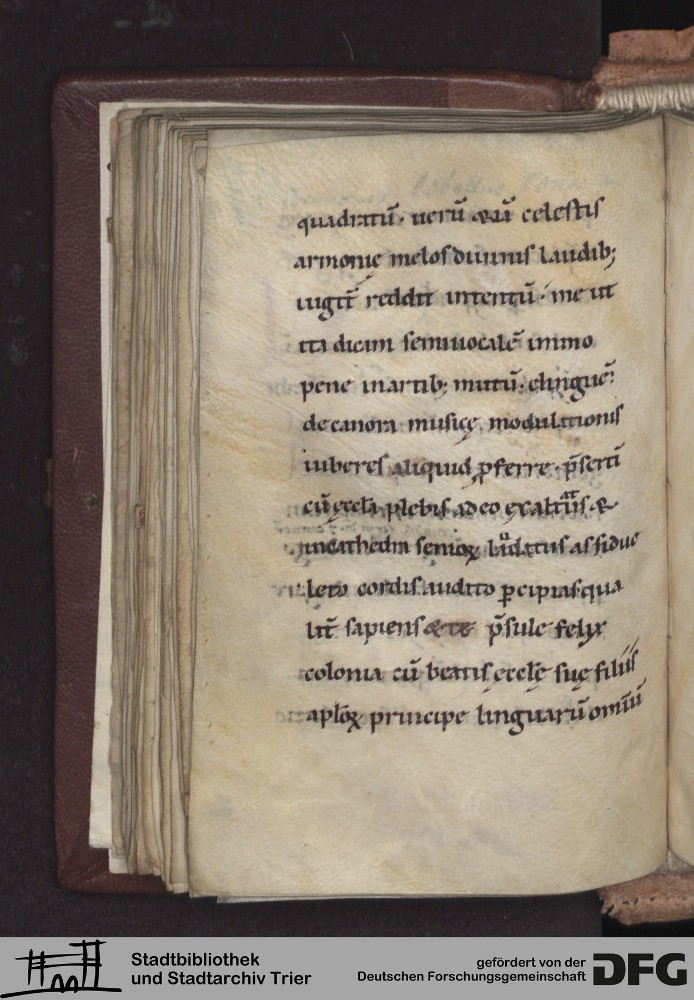 quadratū· uerū &iā celestis
armonię melos diuinis laudib;
iugit̄ reddit intentū· me ut
ita dicam semiuocalē immo
pene in artib; mutū· elinguē·
de canora musicę modulationis
iuberes aliquid ꝓferre· p̄sertī
cū ęccła plebis adeo exalt&
in cathedra senioꝝ laudatus assidue
leto cordis auditu ꝑcipias qua
lit̄ sapiens p̄sule felix
colonia cū beatis ęcclę suę filiis
apłoꝝ principe linguarū omniū
Stadtbibliothek
und Stadtarchiv Trier
gefördert von der
Deutschen Forschungsgemeinschaft
DFG